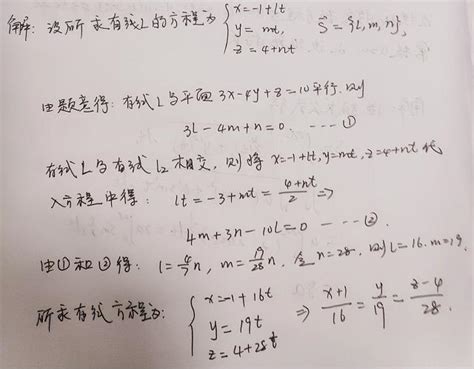 解: 设所求直线L的方程为 { x=-1+lt
y= mt,    S⃗ = {l, m, n},
z=4+nt
由题意得: 直线L与平面 3x-4y+z=10平行. 则
3l-4m+n=0. ----- ①
直线L与直线L₂相交, 则将 x=-1+lt, y=mt, z=4+nt 代
入方程中得: lt = -3+mt = (4+nt)/2 ⇒
4m+3n-10l=0 --- ②.
由①和②得: l=4/7 n, m=19/28 n, 令 n=28, 则 l=16. m=19.
所求直线方程为: { x=-1+16t
y=19t    ⇒ (x+1)/16 = y/19 = (z-4)/28.
z=4+28t